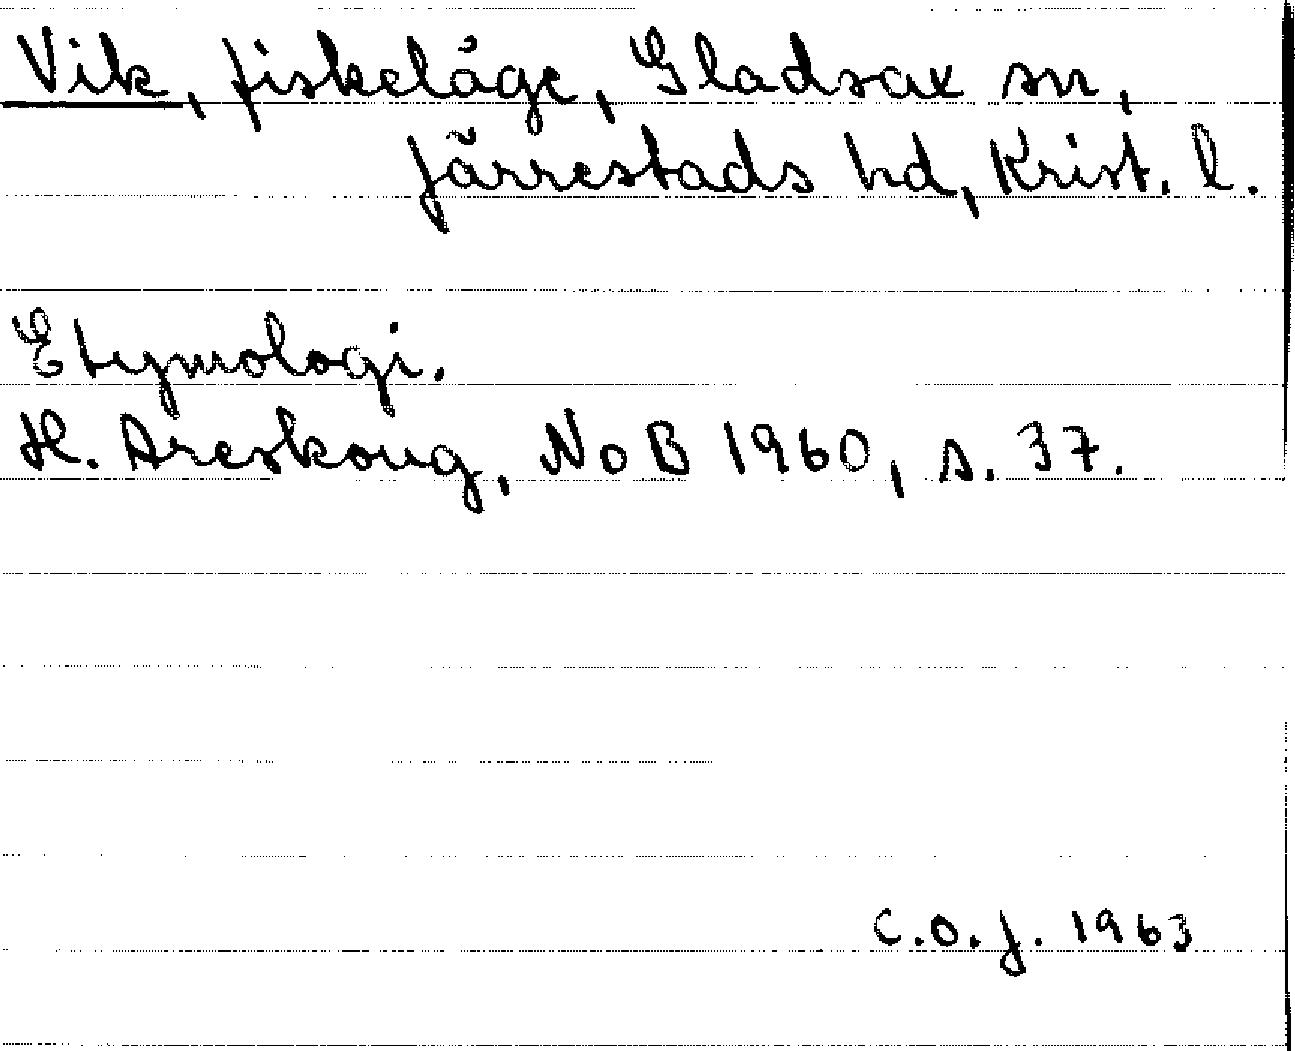 Vik, fiskeläge, Gladsax sn,
Järrestads hd, Krist. l.
Etymologi.
H. Areskoug, NoB 1960, s. 37.
C.O.J. 1963